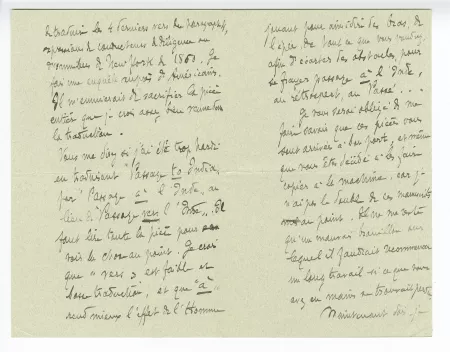 de traduire les 4 derniers vers du paragraphe,
expressions de conducteurs de diligence ou
de New York de 1860. Je
fais une enquête auprès d'Américains.
Il m'ennuierait de sacrifier la pièce
entière que je crois assez bien venue dans
la traduction.
Vous me direz si j'ai été trop hardi
en traduisant "Passage to India"
par "Passage à l'Inde", au
lieu de "Passage vers l'Inde". Il
faut lire toute la pièce pour
voir la chose au point. Je crois
que "vers" est faible et
traduction, et que "à"
rend mieux l'effet de l'Homme
jouant pour ainsi dire des bras, de
l'épée de tout ce que vous voudrez,
afin d'écarter des obstacles, pour
se frayer passage à l'Inde,
au, au Passé ....
Je vous serai obligé de me
faire savoir que ces pièces vous
sont arrivées à bon port, et même
que vous êtes décidé à les faire
copier à la machine. Car je
n'ai pas le double de ces manuscrits
au point. Il ne me reste
qu'un mauvais brouillon sur
lequel il faudrait recommencer
un long travail si ce que vous
avez en mains se trouvait perdu.
Maintenant, je